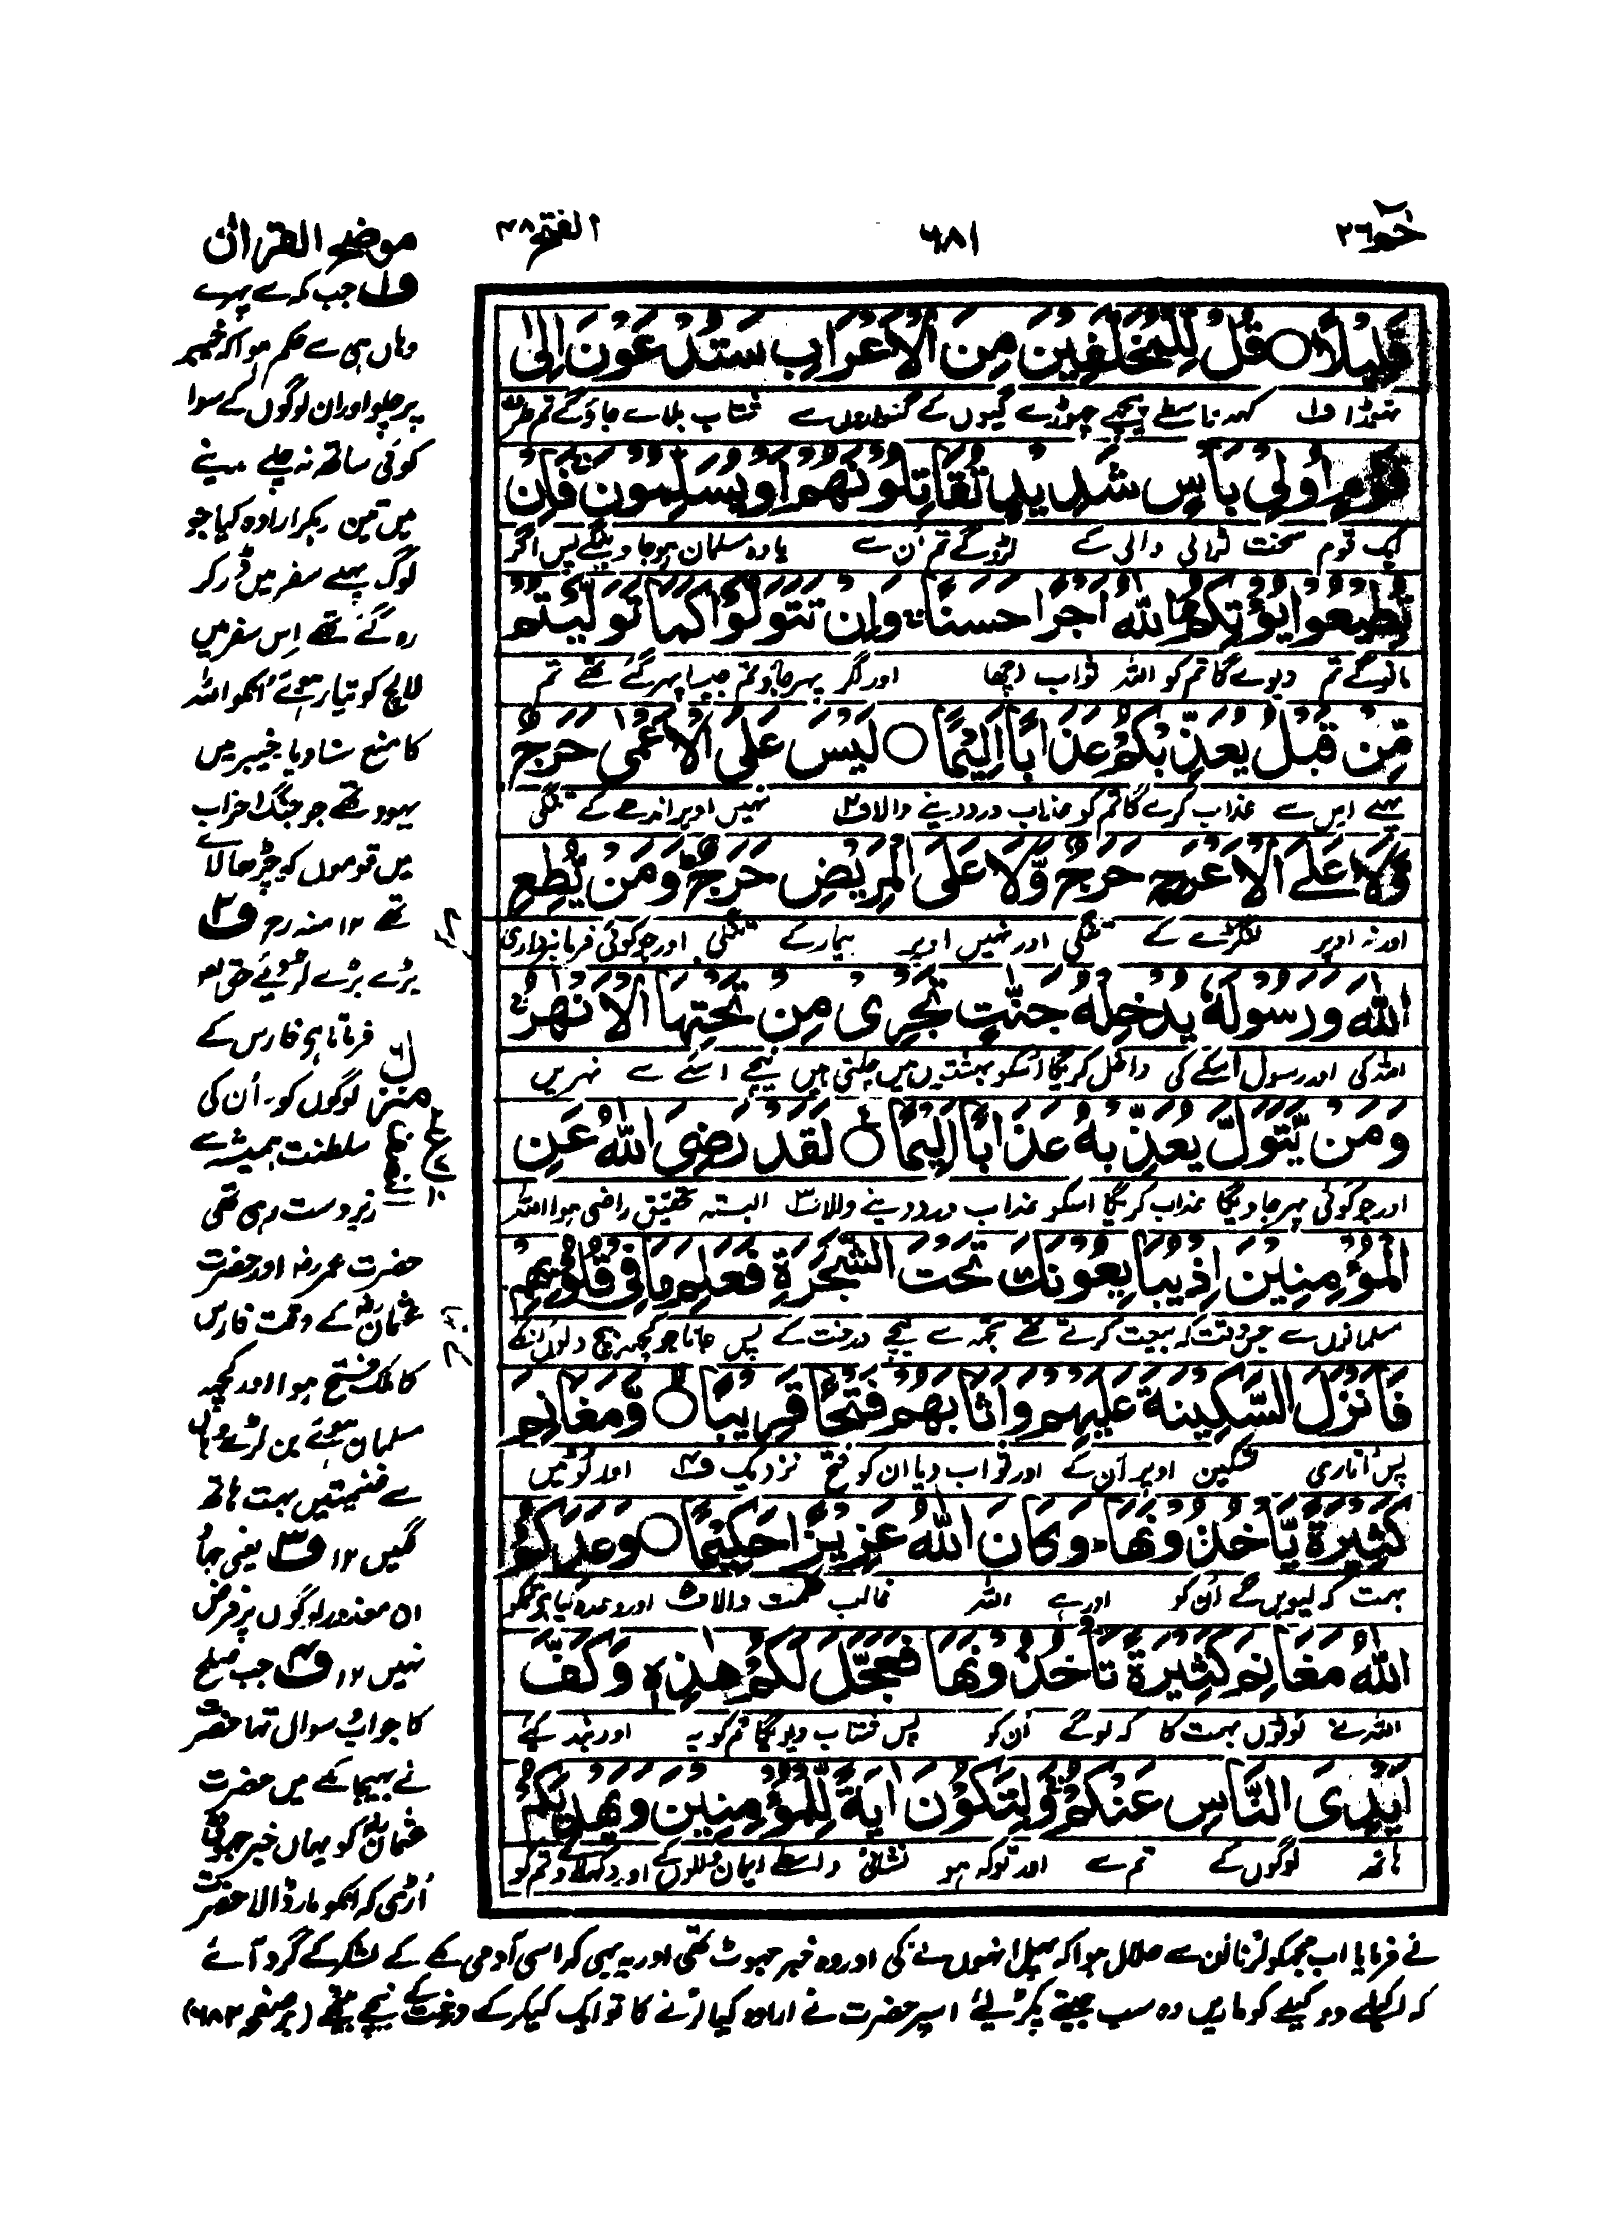 حٰمٓ ٢٦
٦٨١
الفتح ٤٨
قَلِيْلًا ○ قُلْ لِّلْمُخَلَّفِيْنَ مِنَ الْاَعْرَابِ سَتُدْعَوْنَ اِلٰى
تھوڑا ف۱ کہہ واسطے پیچھے چھوڑے گیوں کے گنواروں سے شتاب بلائے جاؤگے تم طرف
قَوْمٍ اُولِيْ بَاْسٍ شَدِيْدٍ تُقَاتِلُوْنَهُمْ اَوْ يُسْلِمُوْنَ فَاِنْ
ایک قوم سخت لڑائی والی کے لڑوگے تم اُن سے یا وہ مسلمان ہوجاوینگے پس اگر
تُطِيْعُوْا يُؤْتِكُمُ اللّٰهُ اَجْرًا حَسَنًا وَاِنْ تَتَوَلَّوْا كَمَا تَوَلَّيْتُمْ
مانوگے تم دیوے گا تم کو اللہ ثواب اچھا اور اگر پھرجاؤ تم جیسا پھرگئے تھے تم
مِّنْ قَبْلُ يُعَذِّبْكُمْ عَذَابًا اَلِيْمًا ○ لَيْسَ عَلَى الْاَعْمٰى حَرَجٌ
پہلے اس سے عذاب کرے گا تم کو عذاب درد دینے والا ف۲ نہیں اوپر اندھے کے تنگی
وَّلَا عَلَى الْاَعْرَجِ حَرَجٌ وَّلَا عَلَى الْمَرِيْضِ حَرَجٌ وَمَنْ يُّطِعِ
اور نہ اوپر لنگڑے کے تنگی اور نہیں اوپر بیمار کے تنگی اور جو کوئی فرمانبرداری
اللّٰهَ وَرَسُوْلَهٗ يُدْخِلْهُ جَنّٰتٍ تَجْرِيْ مِنْ تَحْتِهَا الْاَنْهٰرُ
اللہ کی اور رسول اُسکے کی داخل کریگا اُسکو بہشتوں میں چلتی ہیں نیچے اُنکے سے نہریں
وَمَنْ يَّتَوَلَّ يُعَذِّبْهُ عَذَابًا اَلِيْمًا ○ لَقَدْ رَضِيَ اللّٰهُ عَنِ
اور جو کوئی پھرجاویگا عذاب کریگا اُسکو عذاب درد دینے والا ف۳ البتہ تحقیق راضی ہوا اللہ
الْمُؤْمِنِيْنَ اِذْ يُبَايِعُوْنَكَ تَحْتَ الشَّجَرَةِ فَعَلِمَ مَا فِيْ قُلُوْبِهِمْ
مسلمانوں سے جس وقت کہ بیعت کرتے تھے تجھ سے نیچے درخت کے پس جانا جو کچھ بیچ دلوں اُنکے
فَاَنْزَلَ السَّكِيْنَةَ عَلَيْهِمْ وَاَثَابَهُمْ فَتْحًا قَرِيْبًا ○ وَّمَغَانِمَ
پس اُتاری تسکین اوپر اُن کے اور ثواب دیا ان کو فتح نزدیک ف۴ اور لوٹیں
كَثِيْرَةً يَّاْخُذُوْنَهَا وَكَانَ اللّٰهُ عَزِيْزًا حَكِيْمًا ○ وَعَدَكُمُ
بہت کہ لیویں گے اُن کو اور ہے اللہ غالب حکمت والا ف۵ اور وعدہ کیا ہے تمکو
اللّٰهُ مَغَانِمَ كَثِيْرَةً تَاْخُذُوْنَهَا فَعَجَّلَ لَكُمْ هٰذِهٖ وَكَفَّ
اللہ نے لوٹوں بہت کا کہ لوگے اُن کو پس شتاب دیویگا تم کو یہ اور بند کیے
اَيْدِيَ النَّاسِ عَنْكُمْ وَلِتَكُوْنَ اٰيَةً لِّلْمُؤْمِنِيْنَ وَيَهْدِيَكُمْ
ہاتھ لوگوں کے تم سے اور توکہ ہو نشانی واسطے ایمان والوں کے اور دکھلاوے تم کو
موضح القرآن
ف۱ جب کہ سے پھرے
وہاں ہی سے حکم ہوا کہ خیبر
پر چلو اور ان لوگوں کے سوا
کوئی ساتھ نہ چلے مدینے
میں تین رہکر ارادہ کیا جو
لوگ پہلے سفر میں ڈر کر
رہ گئے تھے اِس سفر میں
لالچ کو تیار ہوئے اُنکو اللہ
کا منع سنا دیا خیبر میں
یہود تھے جو جنگ احزاب
میں قوموں کو چڑھا لائے
تھے ۱۲ منہ رح ف۲
بڑے بڑے لڑویئے حق تعہ
فرماتا ہی فارس کے
لوگوں کو۔ اُن کی
سلطنت ہمیشہ سے
زبردست رہی تھی
حضرت عمر رضہ اور حضرت
عثمان رضہ کے وقت فارس
کا ملک فتح ہوا اور کچھ
مسلمان ہوئے بن لڑے وہاں
سے غنیمتیں بہت ہاتھ
لگیں ۱۲ ف۳ یعنی جہاد
ان معذور لوگوں پر فرض
نہیں ۱۲ ف۴ جب صلح
کا جواب سوال تھا حضرت
نے بھیجا مکے میں حضرت
عثمان رضہ کو یہاں خبر جھوٹی
اُڑی کہ اُنکو مار ڈالا حضرت
منزل ٦
ع ۲ ۱۰
نے فرمایا اب مجھکو لڑنا اُن سے حلال ہوا کہ پہل انہوں نے کی اور وہ خبر جھوٹ تھی اور یہ بھی کہ اسی آدمی مکے کے لشکر کے گرد آئے
کہ اکیلے دوکیلے کو ماریں وہ سب جیتے پکڑ لیئے اسپر حضرت نے ارادہ کیا لڑنے کا تو ایک کیکر کے درخت کے نیچے بیٹھے (بر صفحہ ٦٨٢)